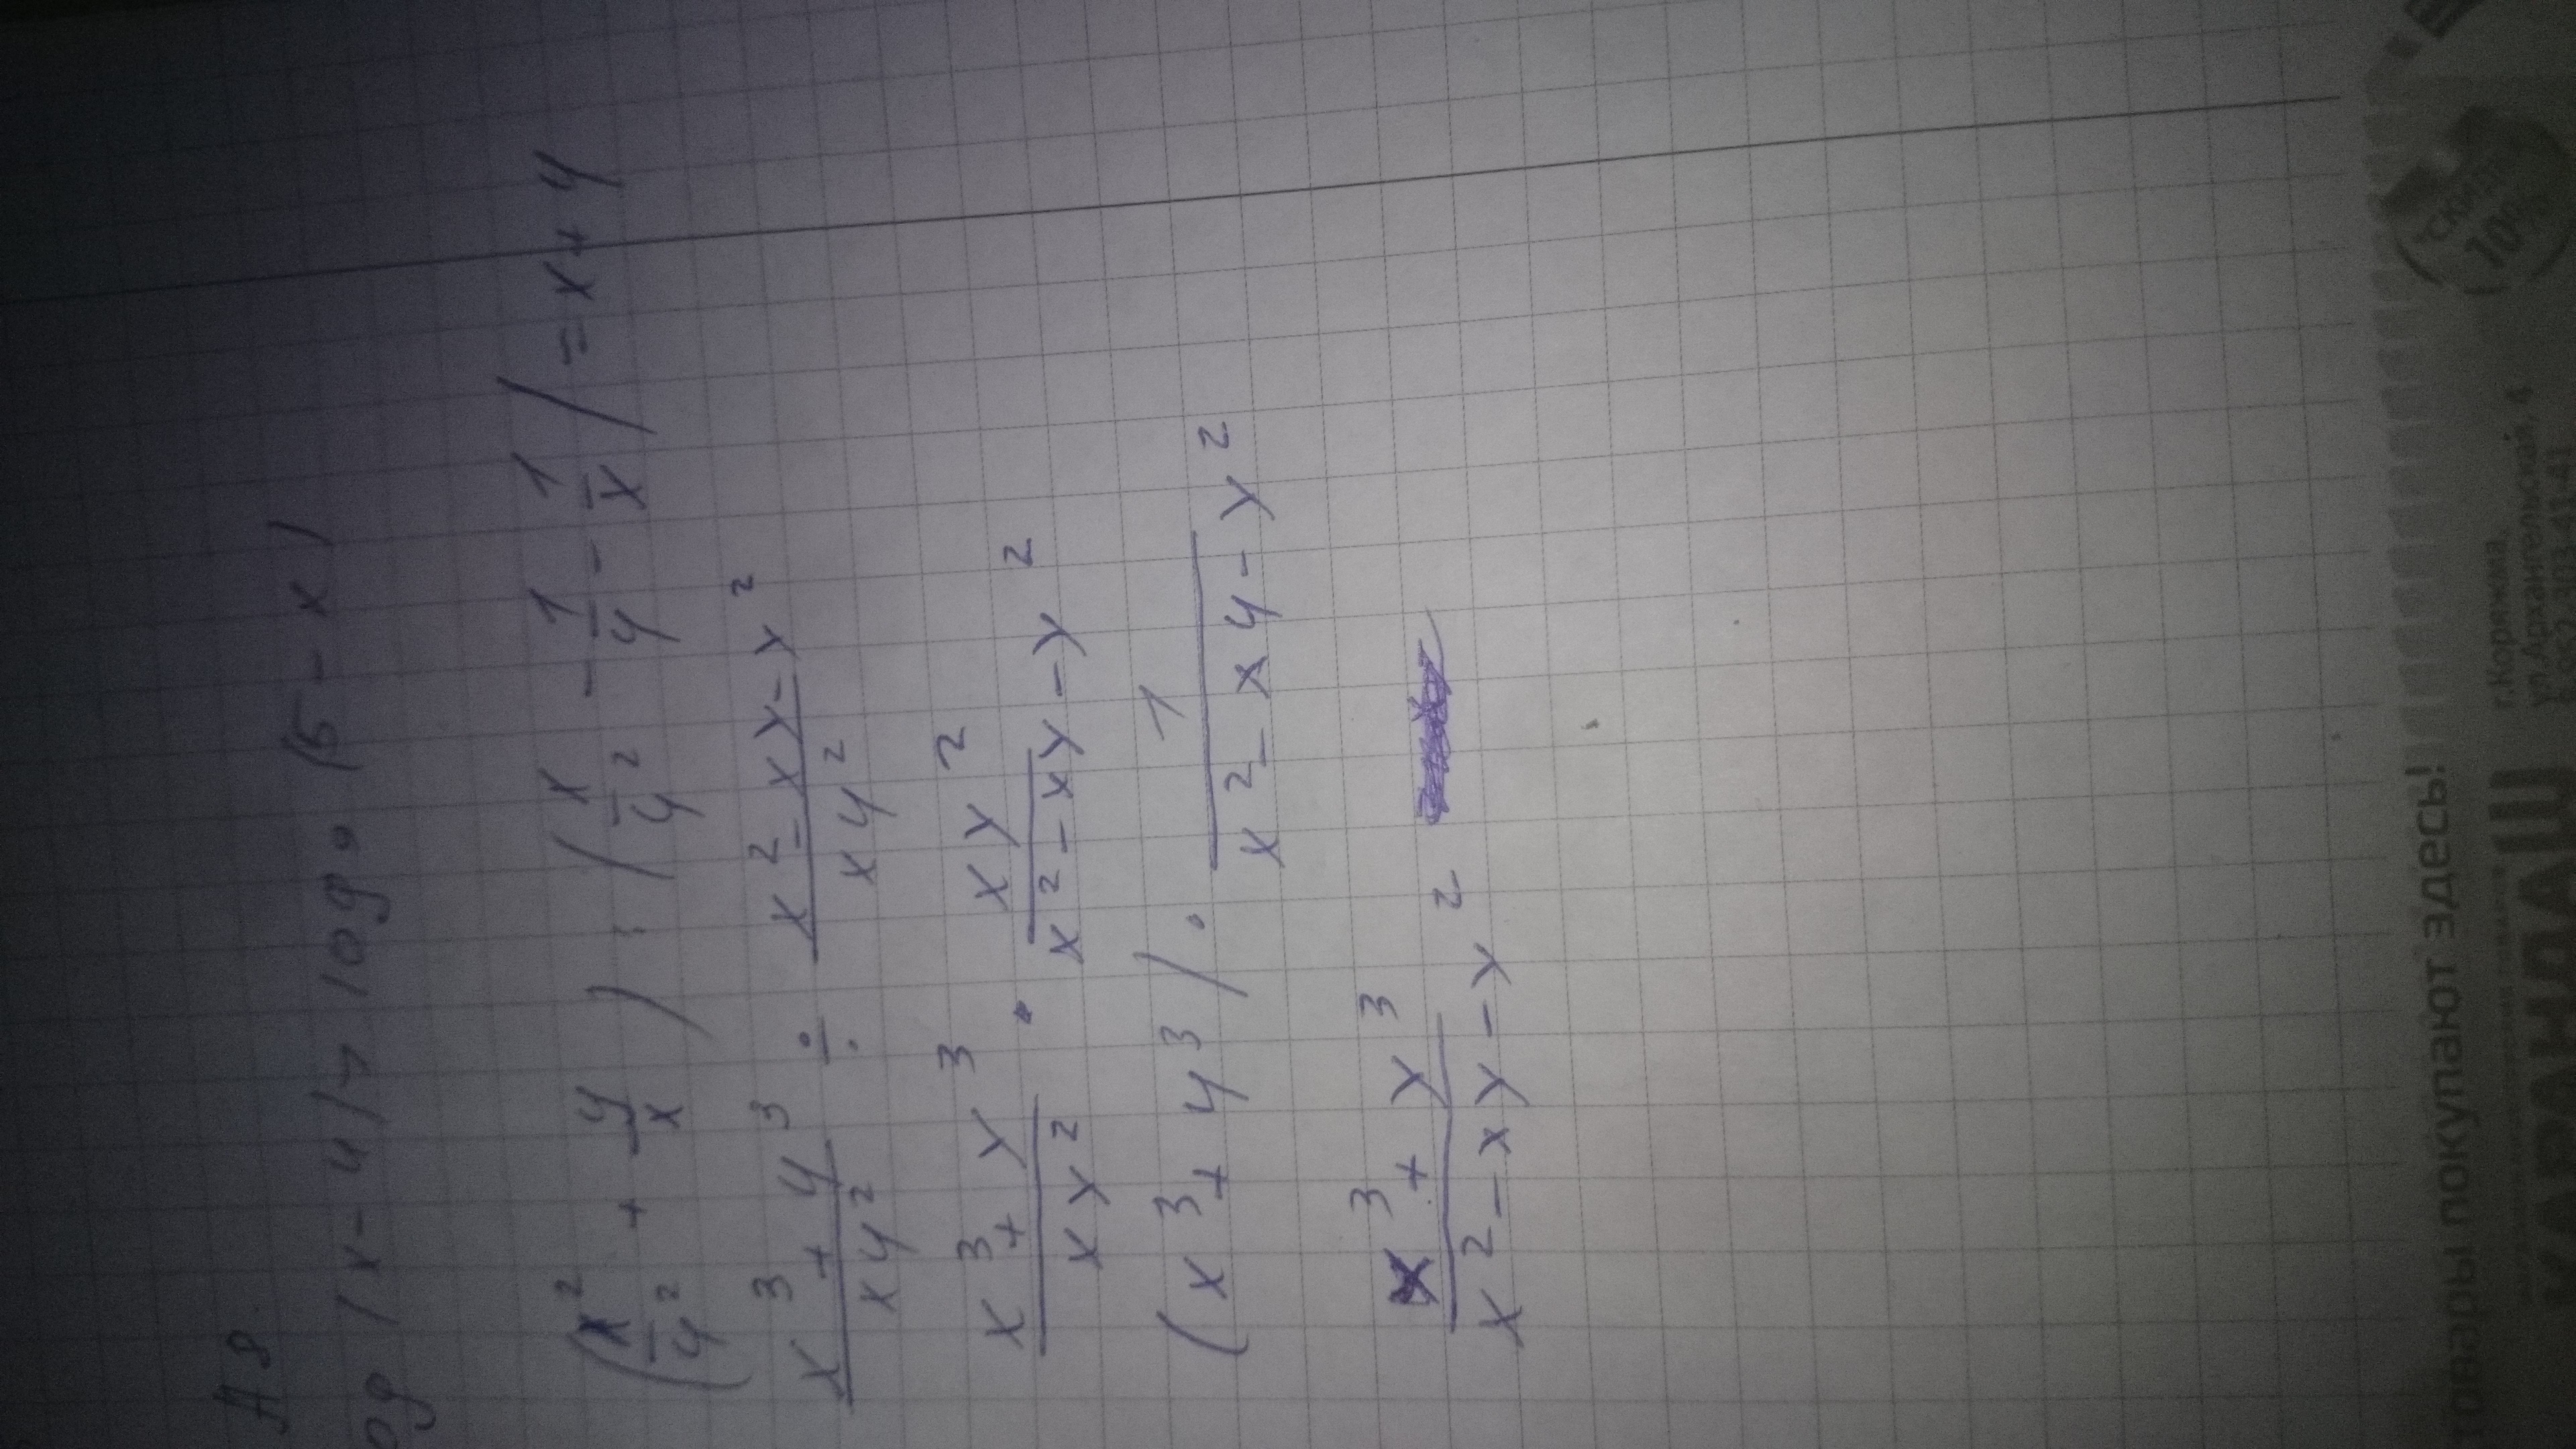 А 8.
log (x - 4) > log₉ (5 - x)
(x²/y² + y/x) : (x/y² - 1/y - 1/x) = x + y
(x³ + y³)/(xy²) ÷ (x² - xy - y²)/(xy²)
(x³ + y³)/(xy²) · xy²/(x² - xy - y²)
(x³ + y³) · 1/(x² - xy - y²)
(x³ + y³)/(x² - xy - y²)
товары покупают здесь!
КАРАНДАШ
г.Коряжма,
ул.Архангельская, 4
10%